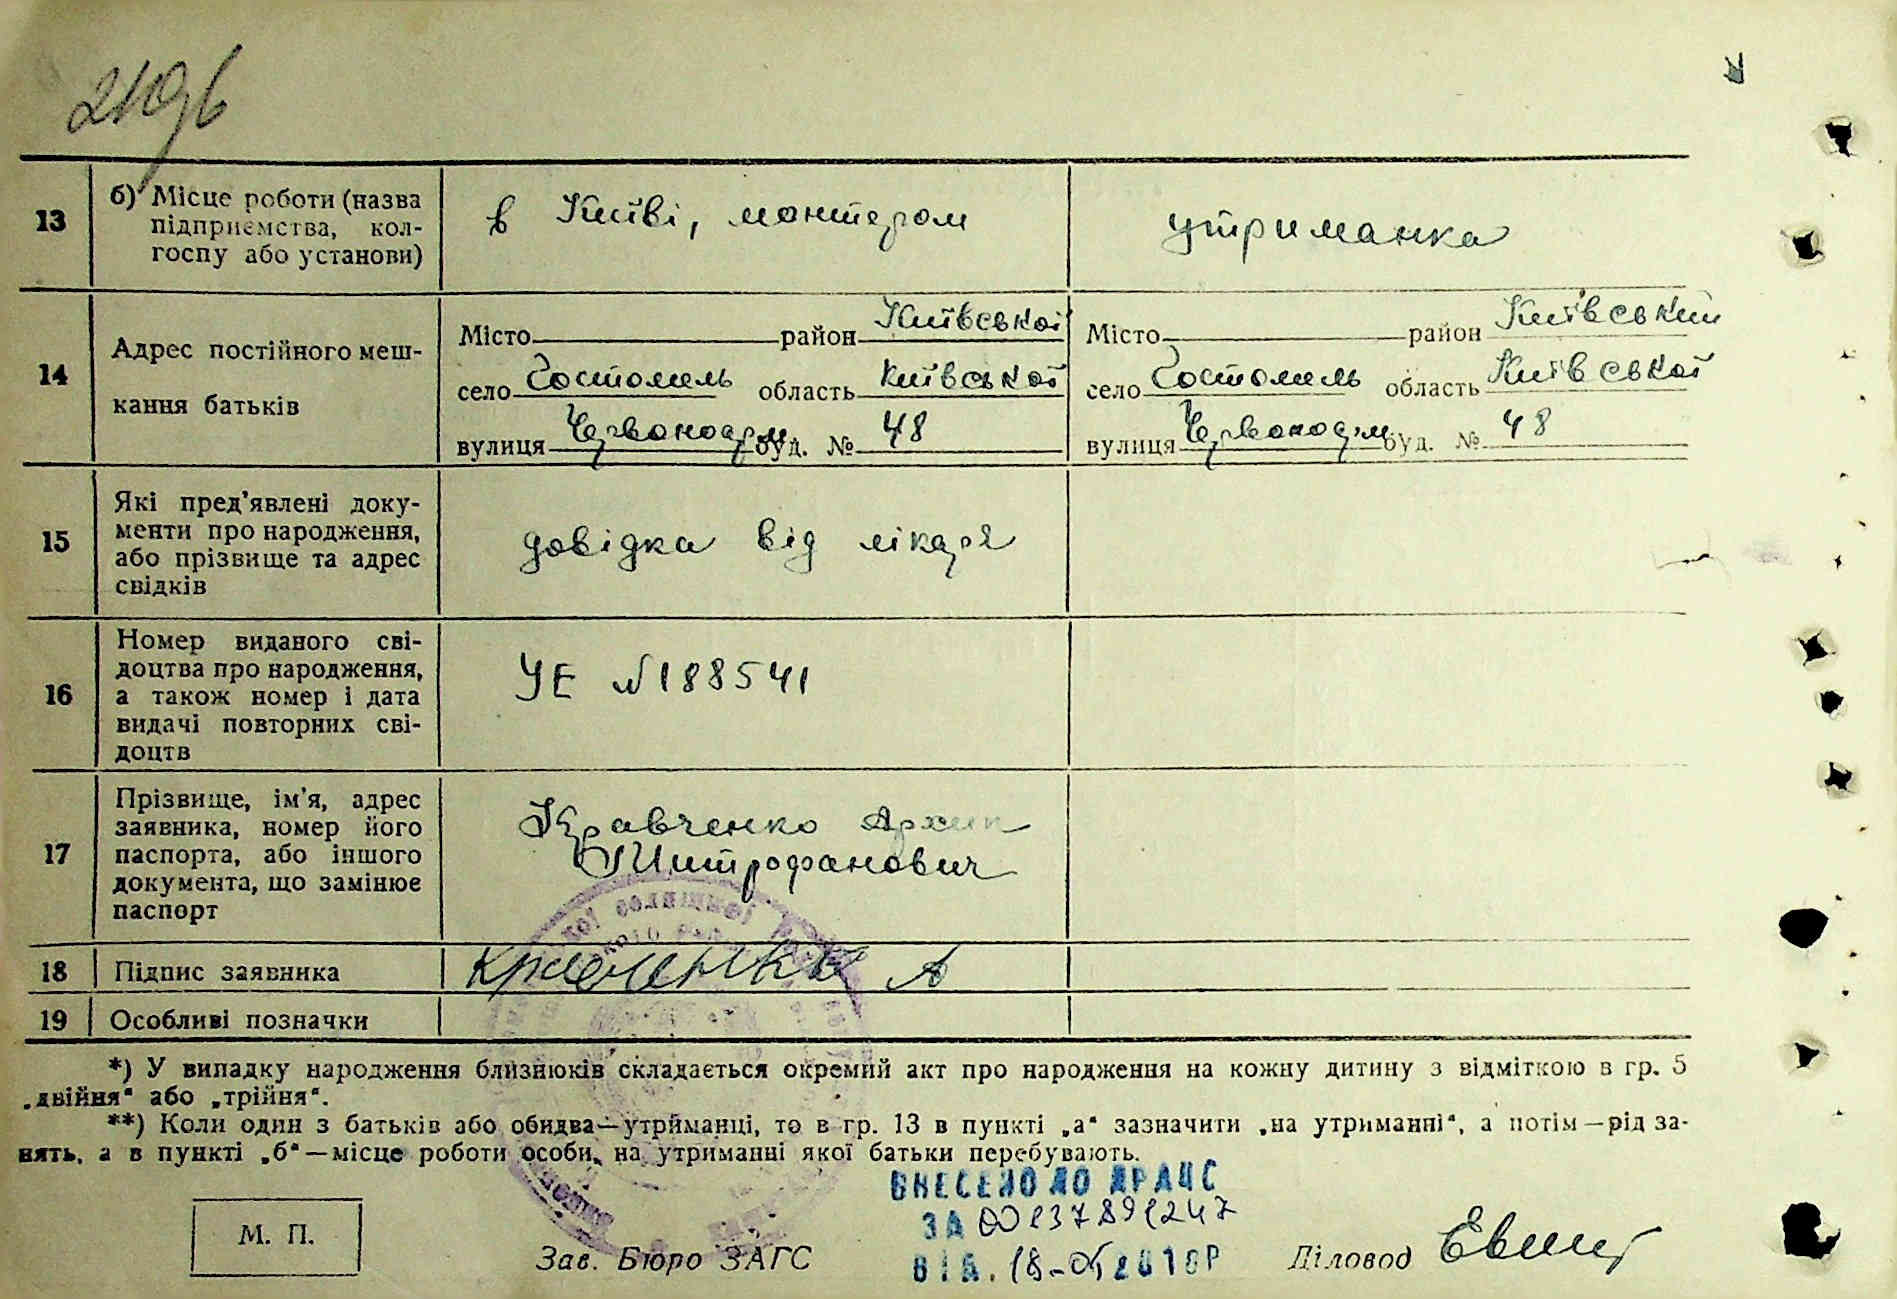 13
б) Місце роботи (назва
підприємства, кол-
госпу або установи)
в Київі, монтером
утриманка
14
Адрес постійного меш-
кання батьків
Місто район Київської
село Гостомель область Київської
вулиця Червоноарм буд. № 48
Місто район Київський
село Гостомель область Київської
вулиця Червоноарм буд. № 48
15
Які пред'явлені доку-
менти про народження,
або прізвище та адрес
свідків
довідка від лікаря
16
Номер виданого сві-
доцтва про народження,
а також номер і дата
видачі повторних сві-
доцтв
УЕ №188541
17
Прізвище, ім'я, адрес
заявника, номер його
паспорта, або іншого
документа, що замінює
паспорт
Кравченко Архип
Митрофанович
18
Підпис заявника
19
Особливі позначки
*) У випадку народження близнюків складається окремий акт про народження на кожну дитину з відміткою в гр. 5
„двійня“ або „трійня“.
**) Коли один з батьків або обидва—утриманці, то в гр. 13 в пункті „а“ зазначити „на утриманні“, а потім—рід за-
нять, а в пункті „б“—місце роботи особи, на утриманні якої батьки перебувають.
ВНЕСЕНО ДО ДРАЦС
ЗА 00137891247
ВІД
М. П.
Зав. Бюро ЗАГС
Діловод